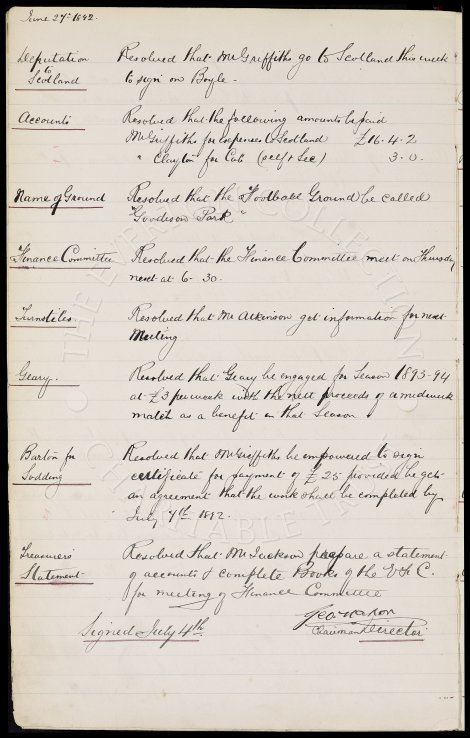 June 27th 1892.
Deputation to Scotland
Resolved that Mr Griffiths go to Scotland this week
to sign on Boyle -
Accounts
Resolved that the following amounts be paid
Mr Griffiths for expenses to Scotland £16-4-2
" Clayton for Cab (self & Sec) 3-0.
Name of Ground
Resolved that the Football Ground be called
"Goodison Park"
Finance Committee
Resolved that the Finance Committee meet on Thursday
next at 6-30.
Turnstiles.
Resolved that Mr Atkinson get information for next
Meeting
Geary.
Resolved that Geary be engaged for Season 1893-94
at £3 per week with the nett proceeds of a midweek
match as a benefit in that Season
Barton for Sodding
Resolved that Mr Griffiths be empowered to sign
certificate for payment of £25 provided he gets
an agreement that the work shall be completed by
July 7th 1892.
Treasurers Statement
Resolved that Mr Jackson prepare a statement
of accounts & complete Books of the E F C.
for meeting of Finance Committee
Geo Mahon
Chairman Director
Signed July 4th
THE EVERTON COLLECTION CHARITABLE TRUST